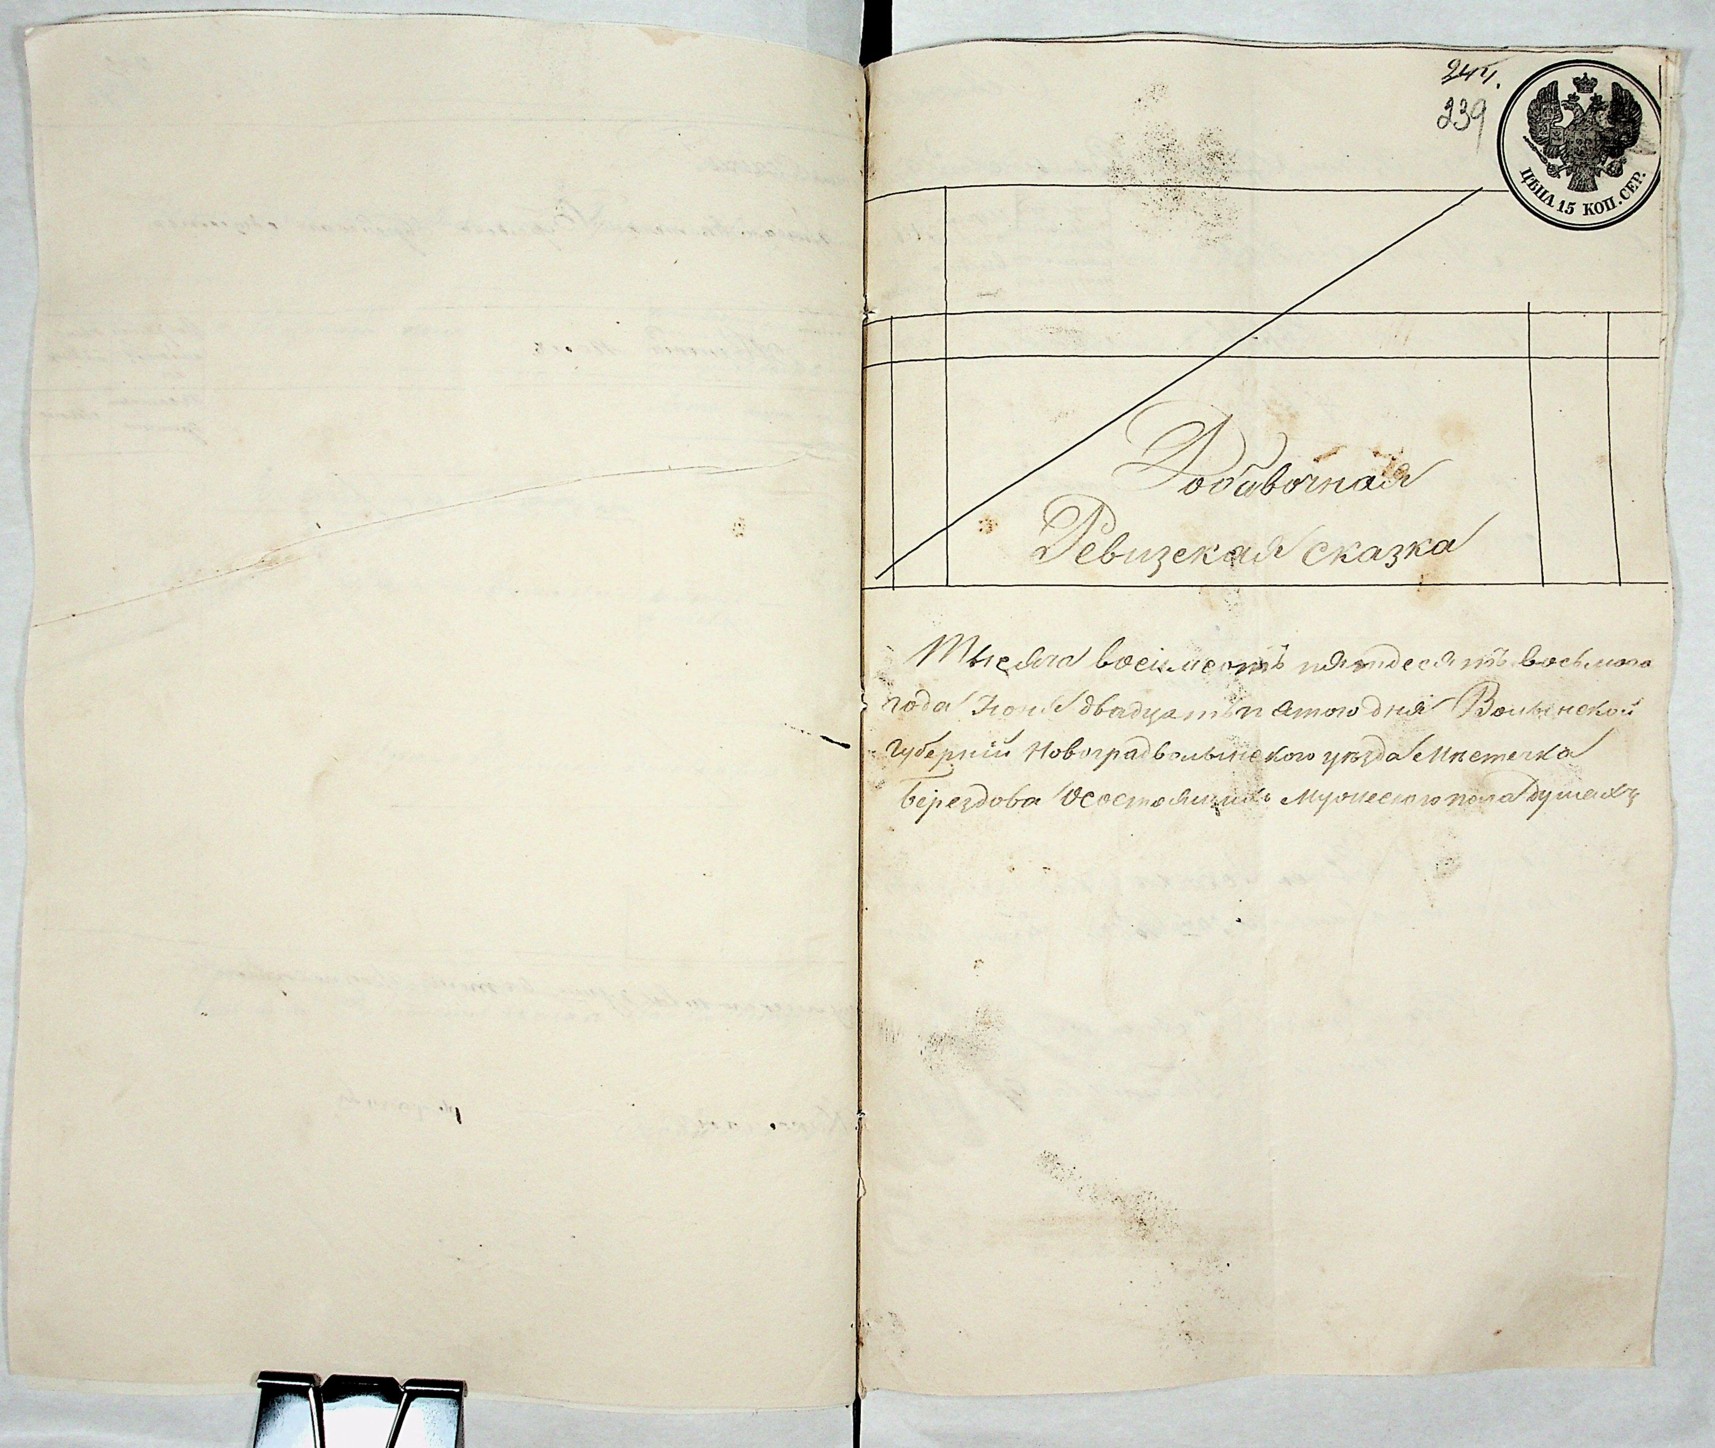 244.
239
ЦѢНА 15 КОП. СЕР.
Добавочная
Ревизская сказка
Тысяча восімсотъ пятдесятъ восьмаго
года Іюня двадцать пятого дня Волынской
Губерніи Новоградволынского уѣзда Мѣстечка
Берездова О состоящихъ Мужеского пола душахъ